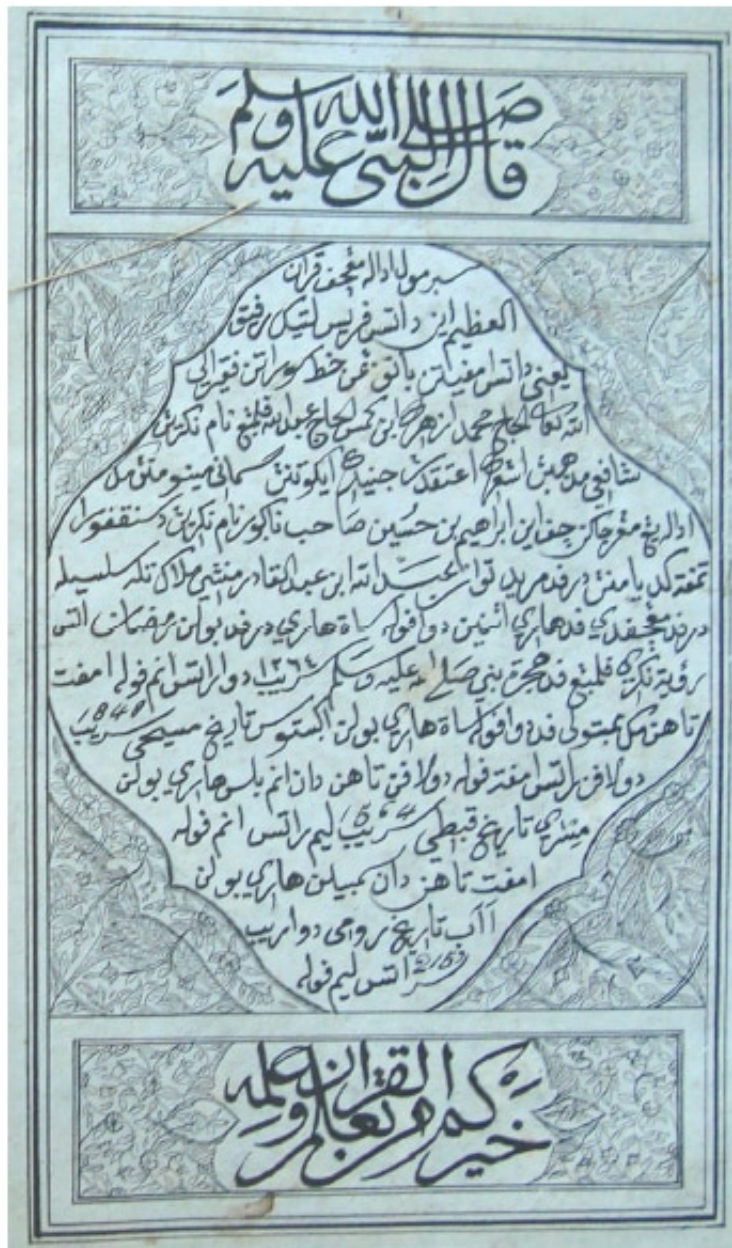 قال النبي صلى الله عليه وسلم
برمولا اداله مصحف قران
العظيم اين داتس فريس لتيك رفيق
يعني داتس
الله تعالى الحاج محمد ازهري ابن كمس الحاج عبد الله فلمبغ نام نكرين
شافعي مذهبن اشعري اعتقادن جنيدي ايكوتنن سماني
اداله يغ مغرجاكن چف اين ابراهيم بن حسين صاحب ناكور نام نكرين د سنقفورا
درفد مريد توان عبد الله ابن عبد القادر منشي ملاك تله سلسيله
درفد فد هاري اثنين دوا فوله ساة هاري درفد بولن رمضان اتس
رؤية نكري فلمبغ فد هجرة نبي صلى الله عليه وسلم سريب ١٢٦٤ دوا راتس انم فوله امفت
تاهن فد دوا فوله ساة هاري بولن اكستوس تاريخ مسيحي سريب
دولافن راتس امفت فوله دولافن تاهن دان انم بلس هاري بولن
مسري تاريخ قبطي سريب 1564 ليم راتس انم فوله
امفت تاهن دان سمبيلن هاري بولن
اَاَب تاريخ رومي دوا ريب
2159 سراتس ليم فوله
خيركم من تعلم القران وعلمه